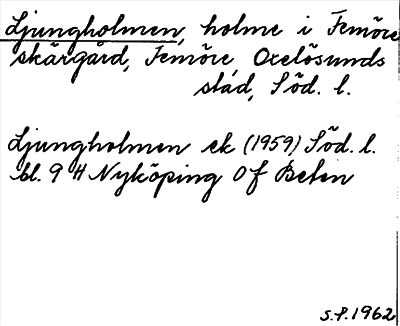 Ljungholmen, holme i Femöre
skärgård, Femöre, Oxelösunds
stad, Söd. l.
Ljungholmen ek (1959) Söd. l.
bl. 9 H Nyköping Of Beten
S.P. 1962